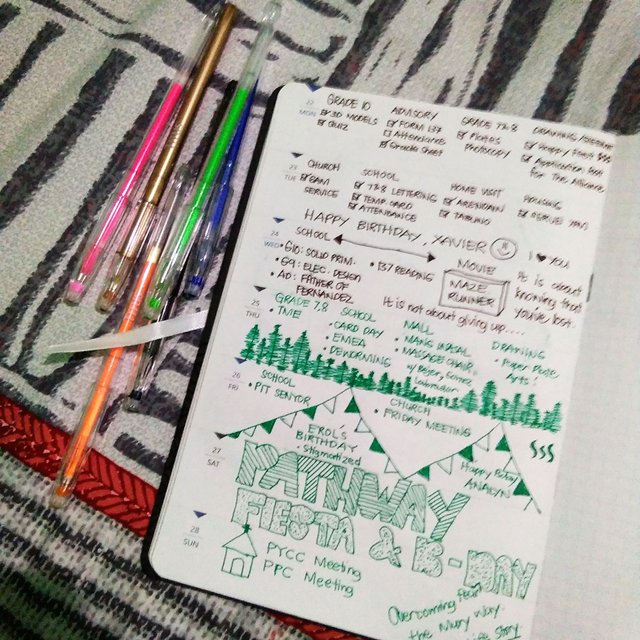 22
MON
GRADE 10
3D MODELS
QUIZ
ADVISORY
FORM 137
Attendance
Google Sheet
GRADE 7&8
Plates
Photocopy
Happy Feast $$$
Application Form
For The Alliance
23
TUE
CHURCH
6AM
SERVICE
SCHOOL
7&8 LETTERING
TEMP. CARD
ATTENDANCE
HOME VISIT
HAPPY BIRTHDAY, XAVIER
24
WED
SCHOOL
• G10: SOLID PRIM.
• G9: ELEC. DESIGN
• AD: FATHER OF
FERNANDEZ
• 137 READING
MOVIE
MAZE
RUNNER
I ♥ YOU
It is about
knowing that
you've lost.
It is not about giving up....
25
THU
GRADE 7,8
• TLE
SCHOOL
• CARD DAY
• DEWORMING
MALL
• MASSAGE CHAIR
DRAWING
• Paper Plate
Arts!
26
FRI
SCHOOL
• PIT SENYOR
CHURCH
• FRIDAY MEETING
EROL'S
BIRTHDAY
• Stigmatized
$$$
Happy B-day
ANALYN
27
SAT
PATHWAY
FIESTA & B-DAY
28
SUN
PYCC Meeting
PPC Meeting
Overcoming Fear